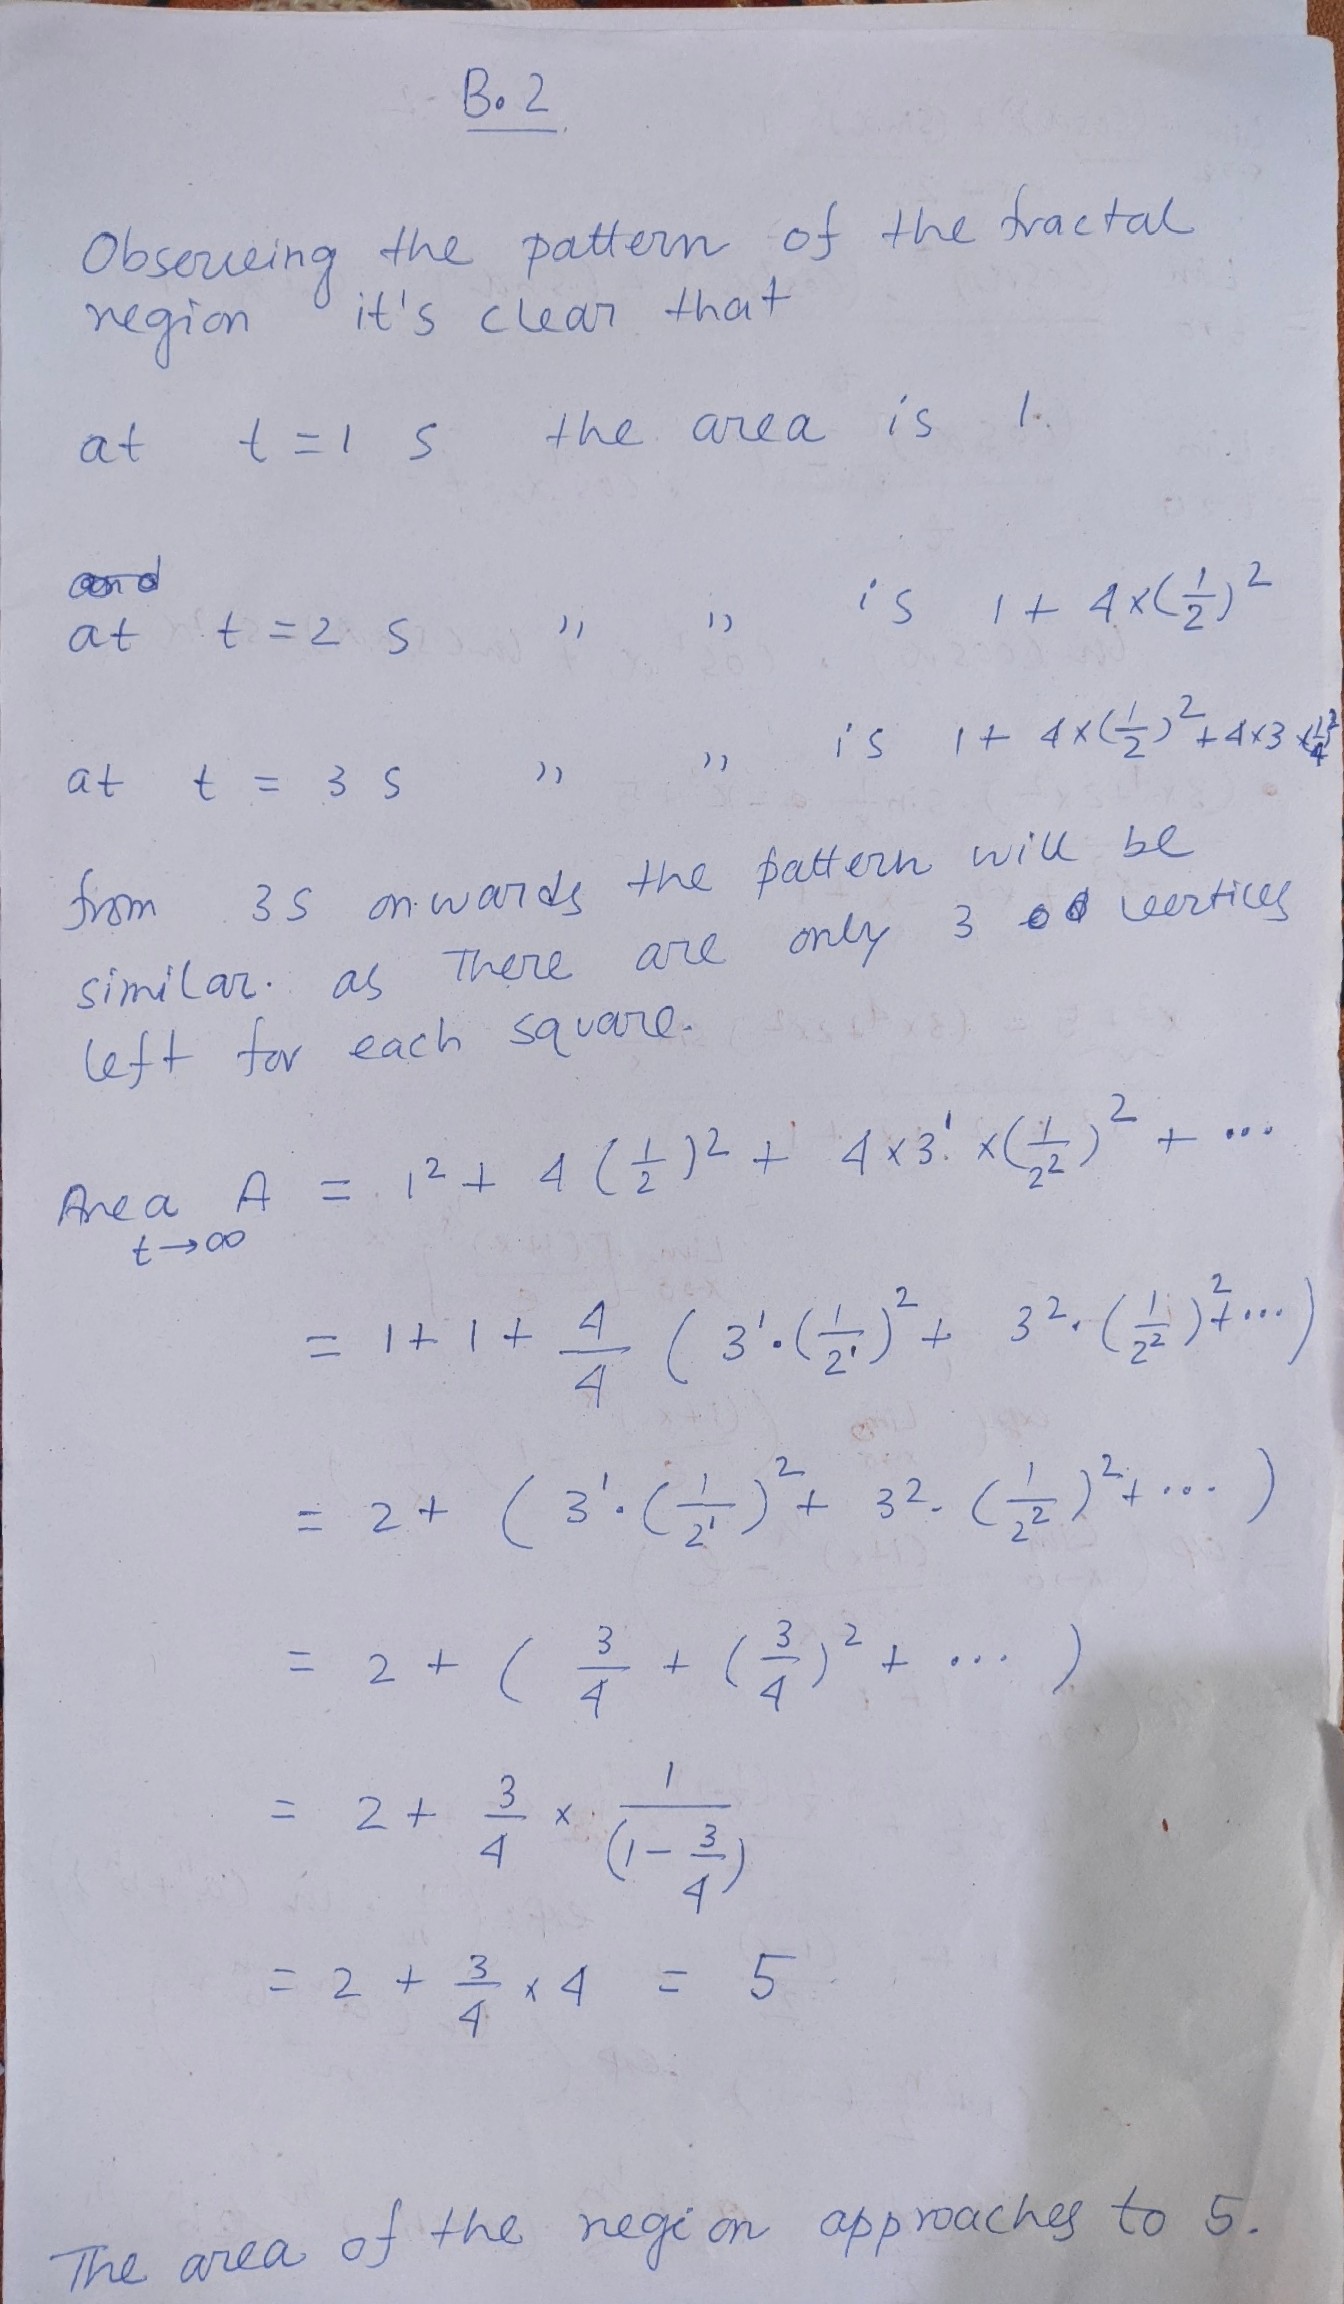 B.2
Observing the pattern of the fractal
region it's clear that
at t = 1 s the area is 1.
and
at t = 2 s " " is 1 + 4×(1/2)²
at t = 3 s " " is 1 + 4×(1/2)² + 4×3×(1/4)²
from 3s onwards the pattern will be
similar. as There are only 3 vertices
left for each square.
Area A = 1² + 4(1/2)² + 4×3¹×(1/2²)² + ...
t→∞
= 1 + 1 + 4/4 (3¹·(1/2¹)² + 3²·(1/2²)² + ...)
= 2 + (3¹·(1/2¹)² + 3²·(1/2²)² + ...)
= 2 + (3/4 + (3/4)² + ...)
= 2 + 3/4 × 1/(1 - 3/4)
= 2 + 3/4 × 4 = 5
The area of the region approaches to 5.